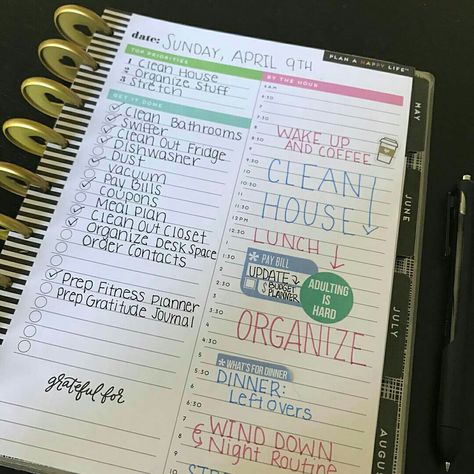 date: SUNDAY, APRIL 9TH
PLAN A HAPPY LIFE™
TOP PRIORITIES
1 Clean House
2 Organize Stuff
3 Stretch
GET IT DONE
Clean Bathrooms
Swiffer
Clean Out Fridge
Dishwasher
Dust
Vacuum
Pay Bills
Coupons
Meal Plan
Clean Out Closet
Organize Desk Space
Order Contacts
Prep Fitness Planner
Prep Gratitude Journal
grateful for
BY THE HOUR
WAKE UP
AND COFFEE
CLEAN
HOUSE
LUNCH
PAY BILL
UPDATE
BUDGET
PLANNER
ADULTING
IS
HARD
ORGANIZE
WHAT'S FOR DINNER
DINNER:
Leftovers
WIND DOWN
Night Routine
MAY
JULY
AUGUS